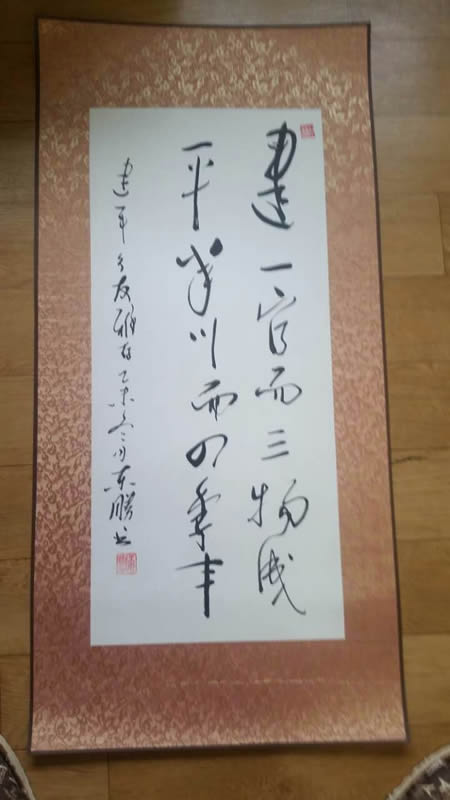 建一官而三物成
平川而四季丰
建平友雅存乙未冬月东勝书